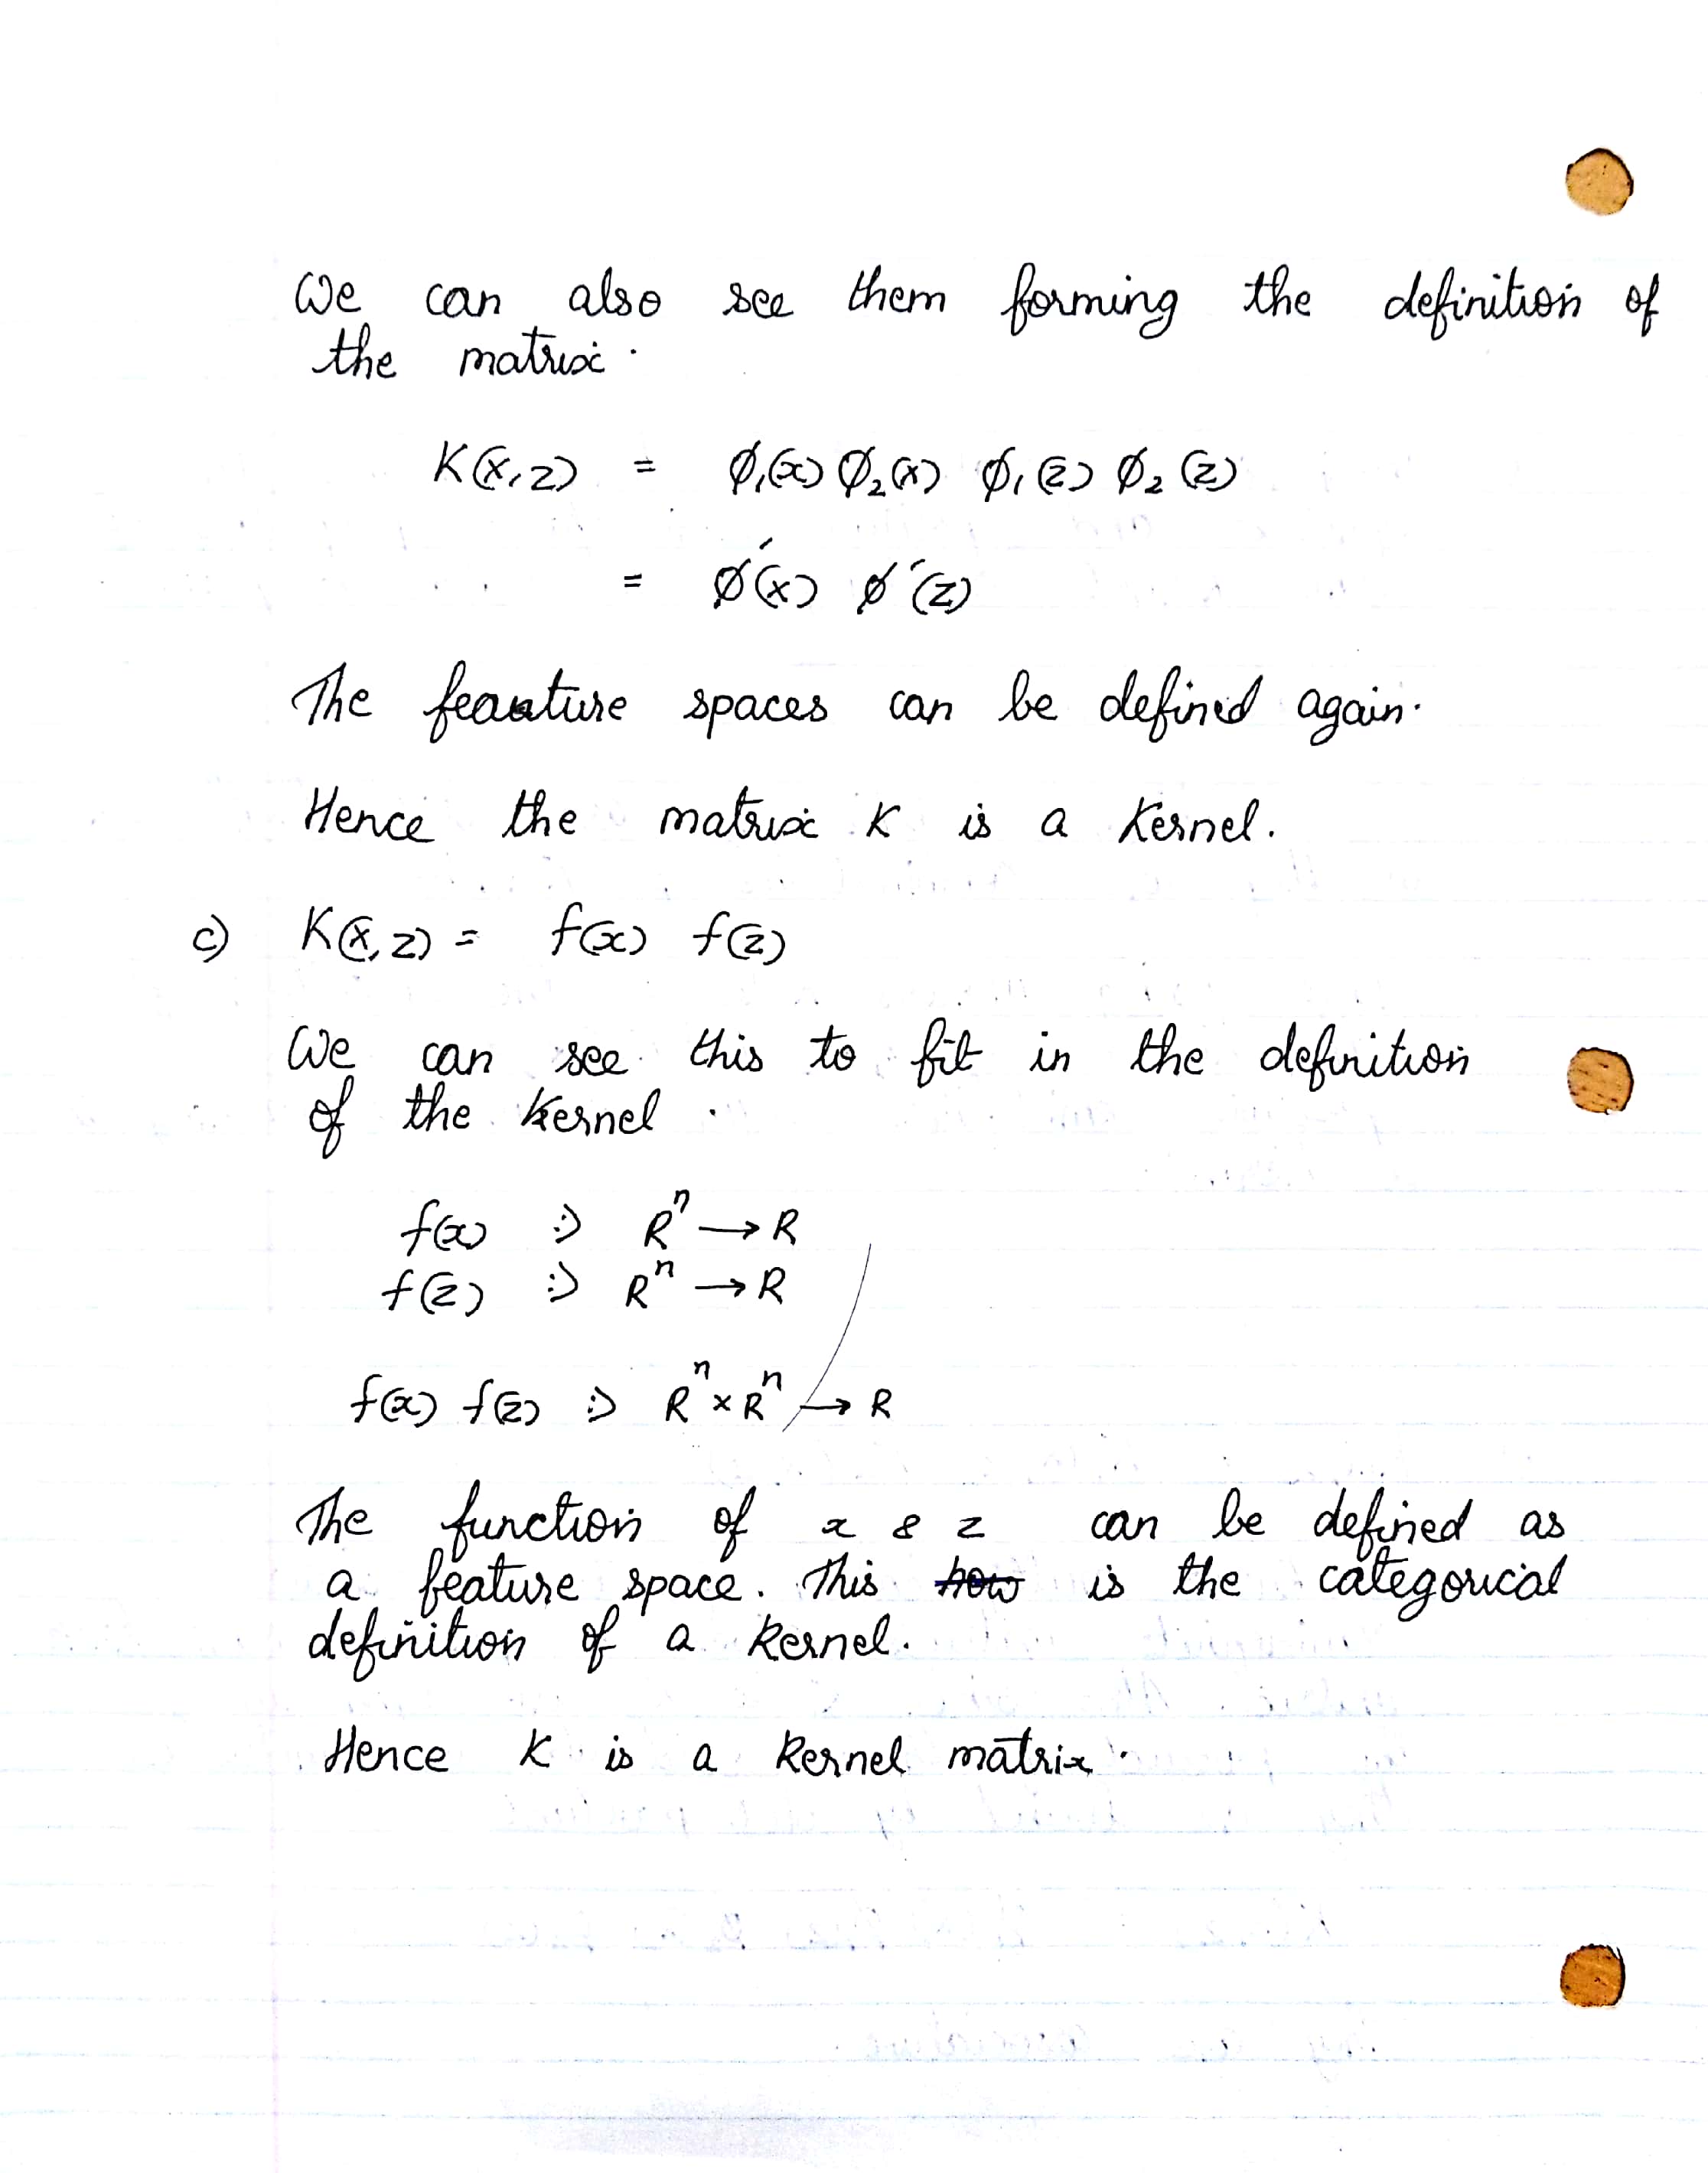 We can also see them forming the definition of
the matrix.
K(x,z) = ϕ₁(x) ϕ₂(x) ϕ₁(z) ϕ₂(z)
= ϕ'(x) ϕ'(z)
The feauture spaces can be defined again.
Hence the matrix K is a Kernel.
c) K(x,z) = f(x) f(z)
We can see this to fit in the definition
of the kernel.
f(x) :) Rⁿ → R
f(z) :) Rⁿ → R
f(x) f(z) :) Rⁿ × Rⁿ → R
The function of x & z can be defined as
a feature space. This how is the categorical
definition of a kernel.
Hence K is a kernel matrix.